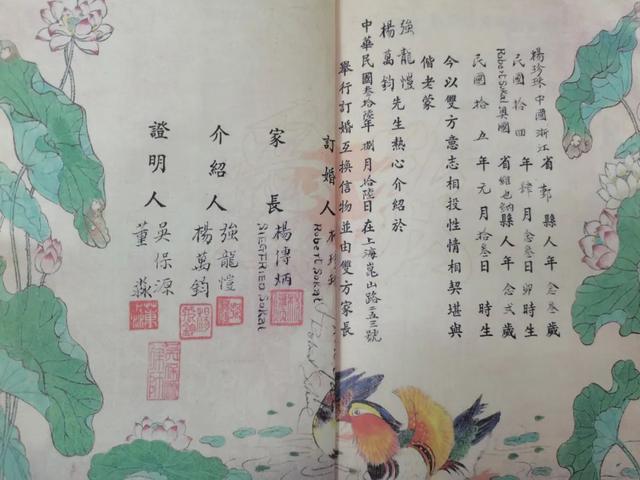 楊珍珠 中國 浙江省 鄞 縣人年 念叁歲
民國 拾四 年 肆 月 念叁日 卯時生
Robert Sokal 奧國 省 維也訥 縣人年 念弍歲
民國 拾 五 年 元 月 拾叁日 時生
今以雙方意志相投性情相契堪與
偕老蒙
強龍愷
楊萬鈞 先生熱心介紹於
中華民國叁拾陸年捌月拾陸日在上海崑山路二五三號
舉行訂婚互換信物並由雙方家長
訂婚人
Robert Sokal
家長 楊傳炳
SIEGFRIED SOKAL
介紹人 強龍愷
楊萬鈞
證明人 吳保源
董